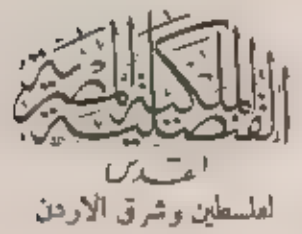 القنصلية الملكية المصرية
القدس
لفلسطين وشرق الاردن